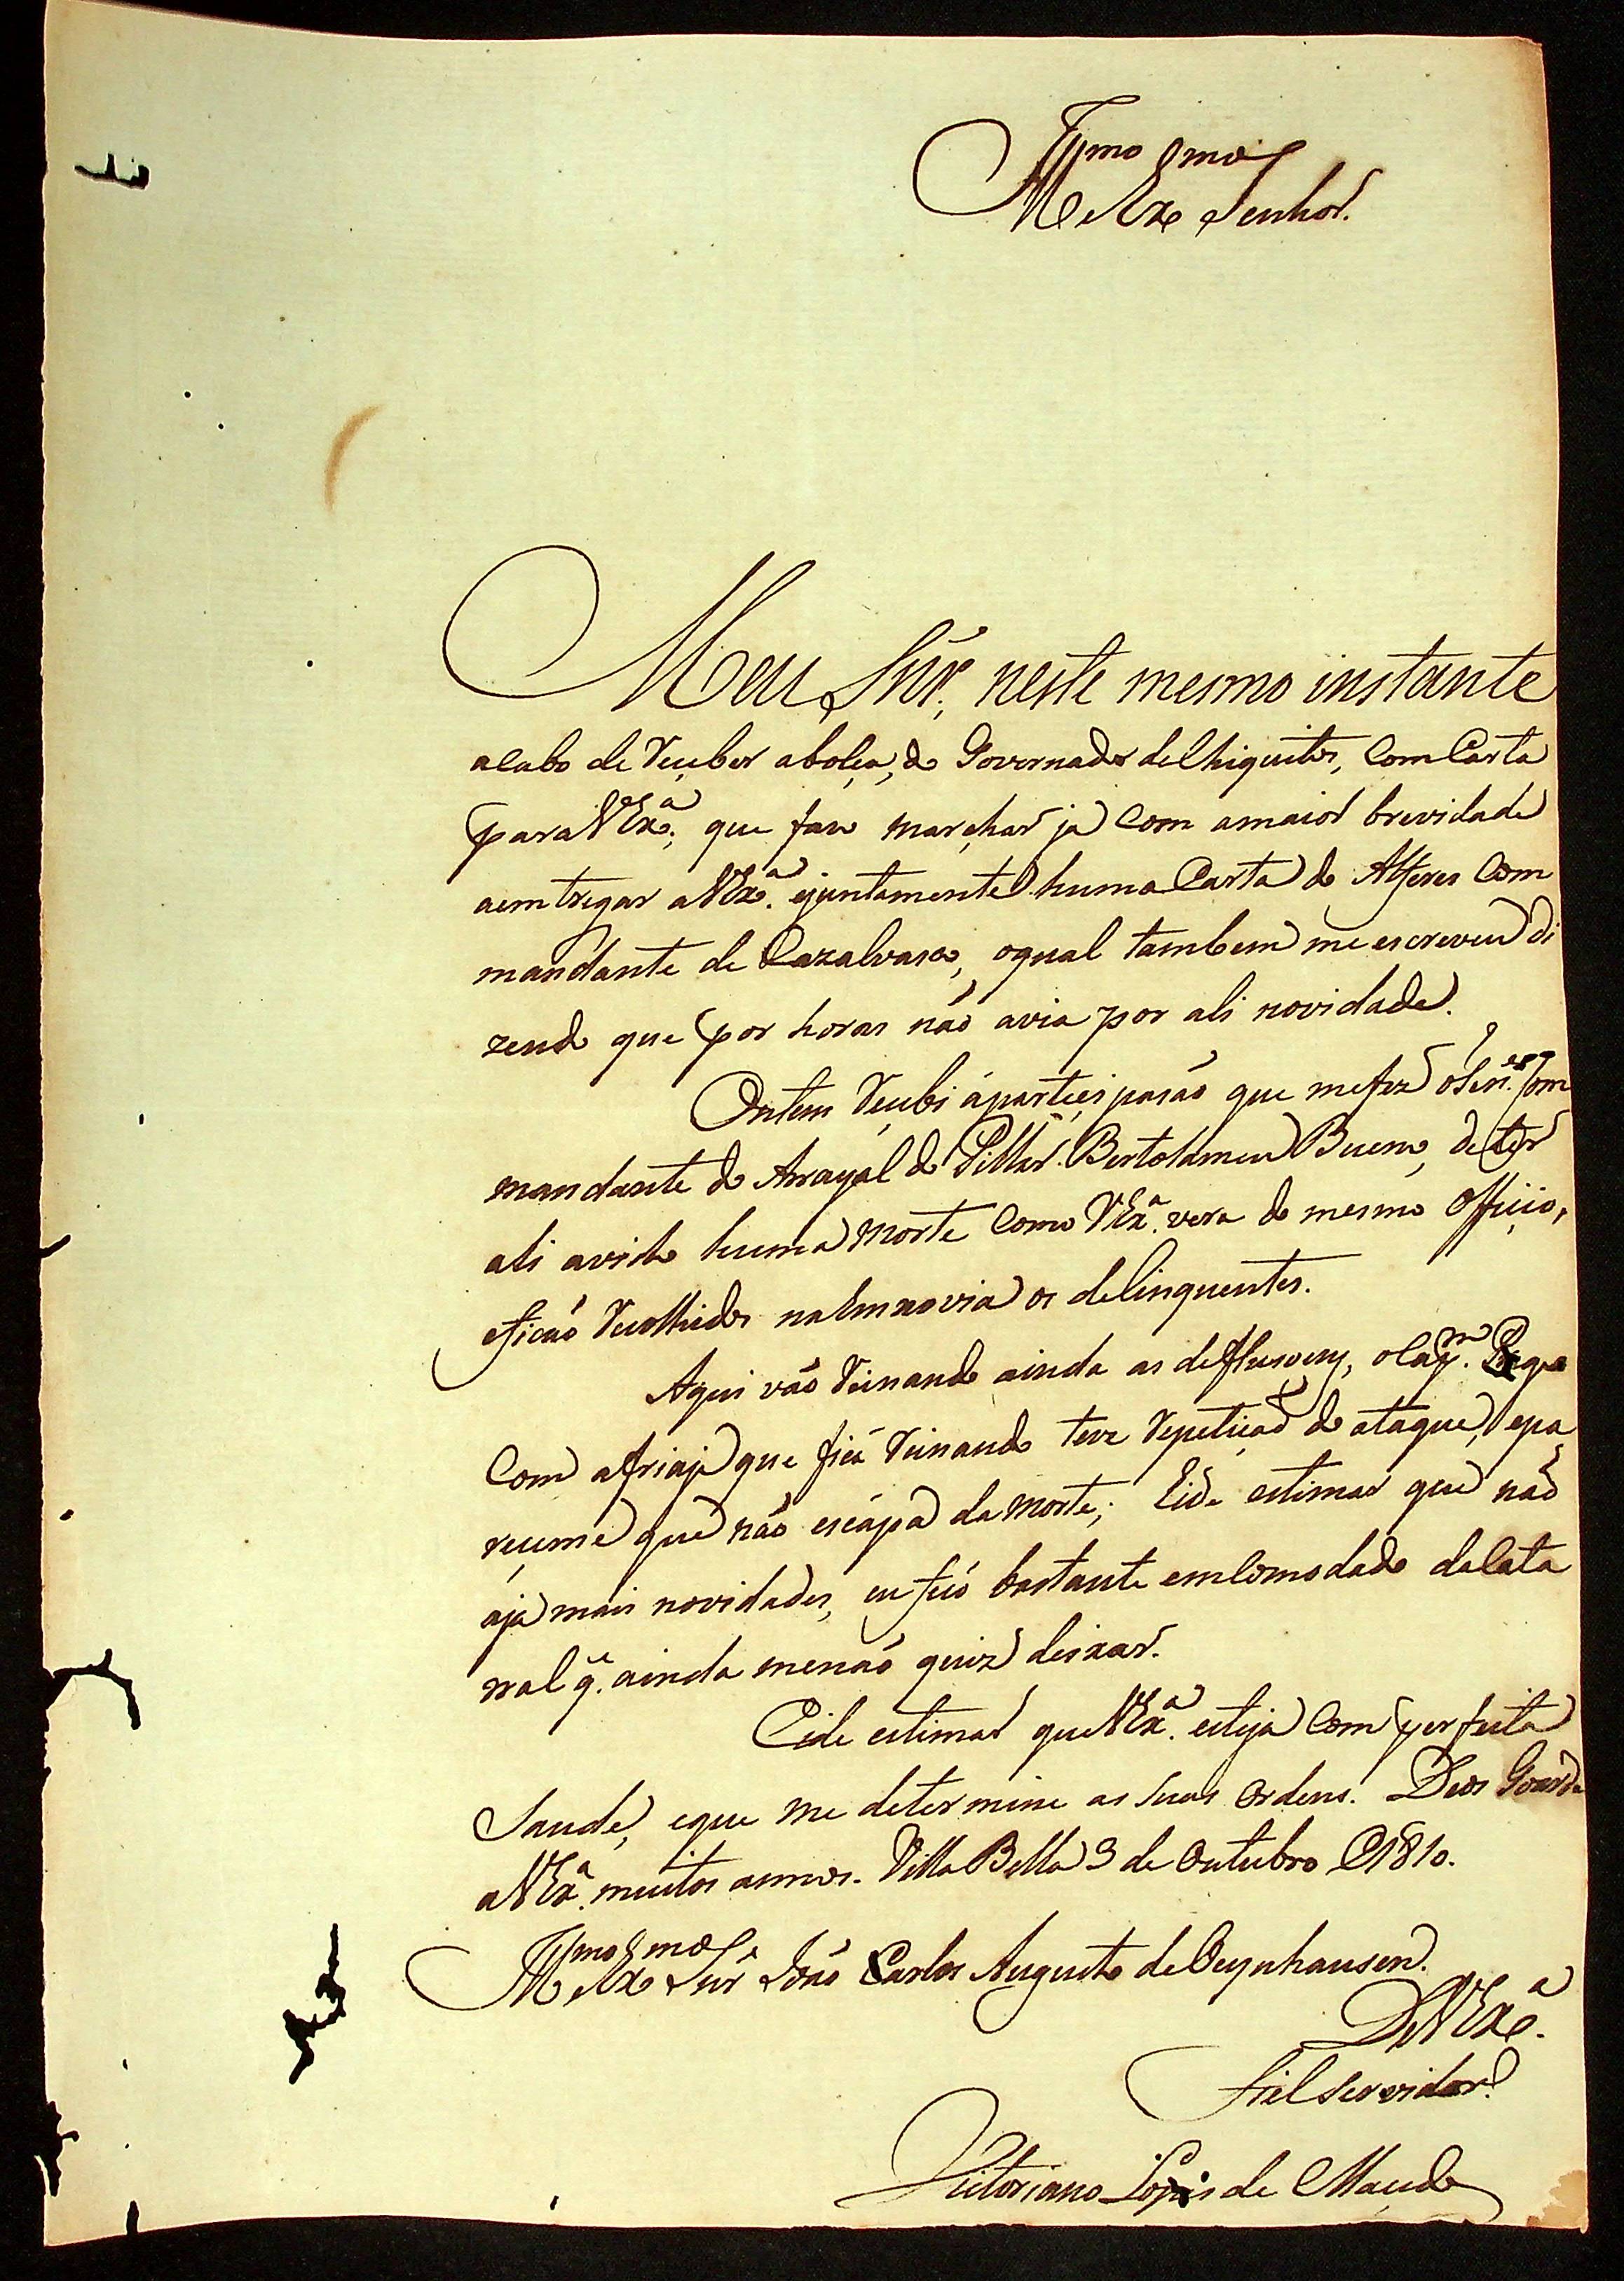 Illmo e Exmo Senhor.
Meu Snr̃, neste mesmo instante
acabo de reçeber aboleta, do Governador deChiquitos, comCarta
paraVExa., que faço marchar já com amaior brevidade
aemtregar aVExa. ejuntamente huma Carta do Alferes Com
mandante de Cazalvasco, oqual tambem me escreveu di
zendo que por horas não avia por ali novidade.
Ontem reçubi áparteçipasão que mefez oTene. Com
mandante do Arrayal do Pillar. Bertolameu Bueno, deter
ali avido huma morte como VExa. vera do mesmo Offiçio,
eficão recolhidos naEmxovia os delinquentes.
Aqui vão Reinando ainda as defluxoens, oCapm.
com afriaje que ficá Reinando teve repetiçaõ do ataque, epa
reçeme que não escápa da morte; Eide estimar que não
aja mais novidades, eu ficó bastante emComodado daCata
rral q̃. ainda menão quiz deixar.
Eide estimar queVExa. esteja com perfeita
Saude, eque me determine as suas ordens. Deos Goarde
aVExa. muitos annos. Villa Bella 3 de Outubro 1810.
Illmo e Exmo Snr̃ João Carlos Augusto deOeynhausen.
DeVExa.
Fiel Servidor.
Victoriano Lopes de Maçedo